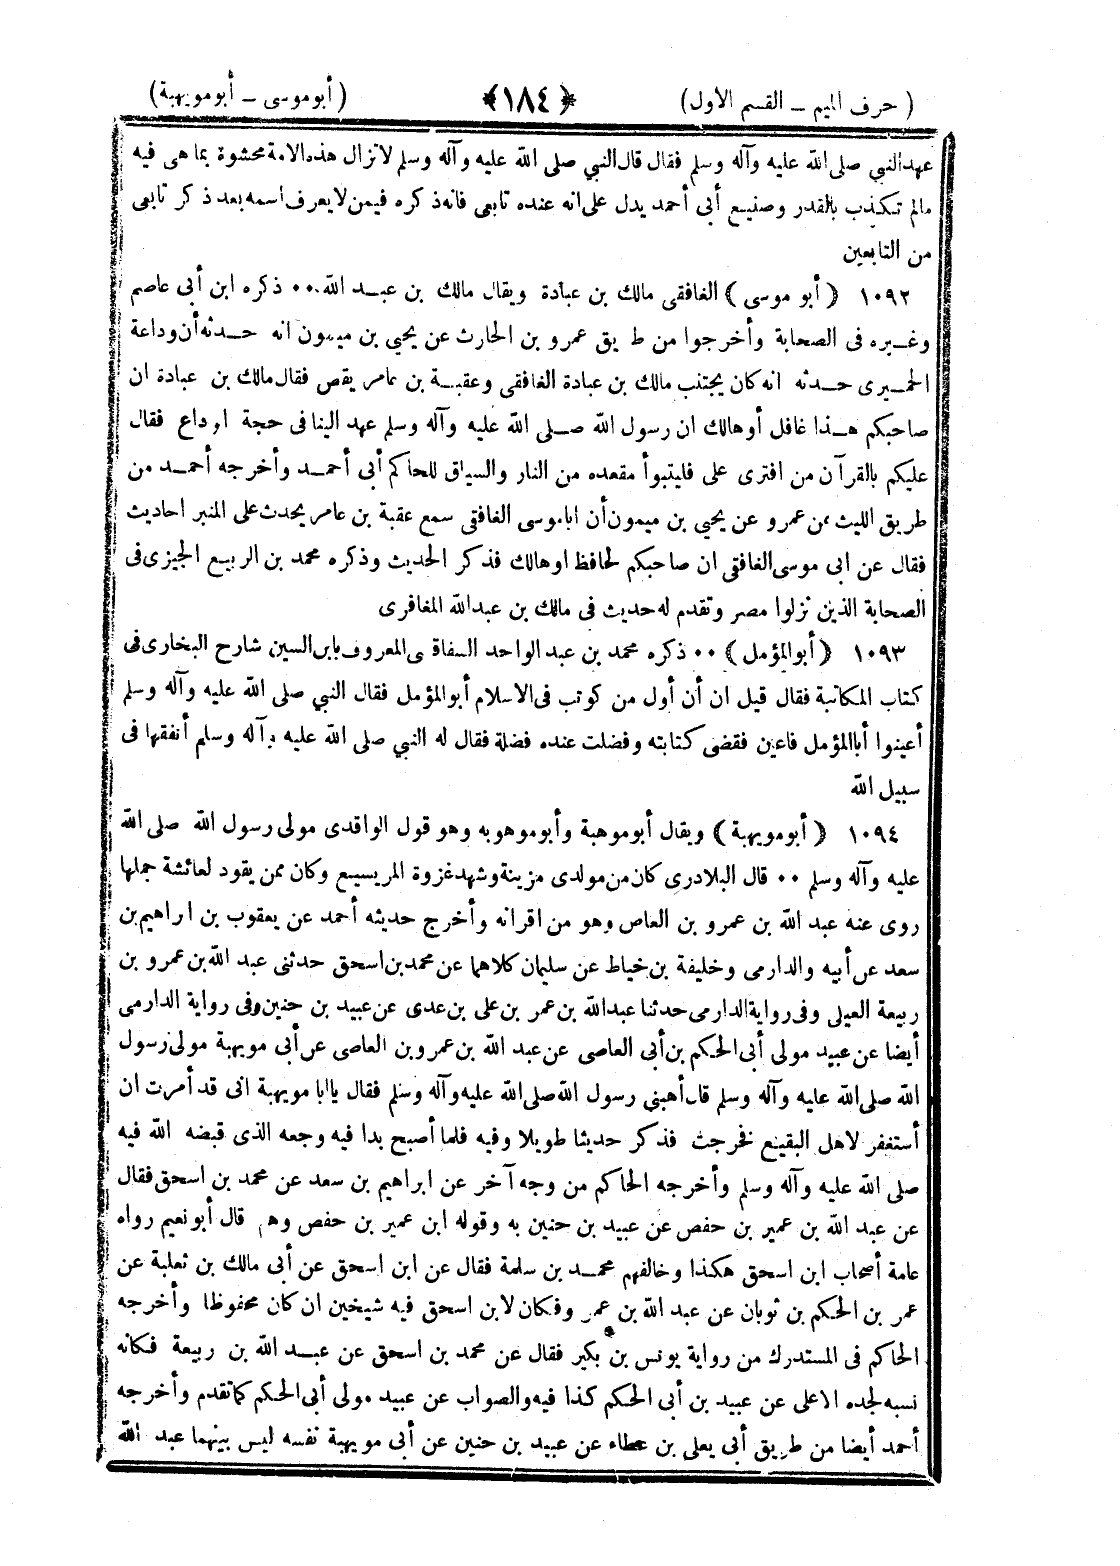 ( حرف الميم ـ القسم الاول )
﴿ ١٨٤ ﴾
( أبوموسى ـ أبومويهبة )
عهد النبي صلى الله عليه وآله وسلم فقال قال النبي صلى الله عليه وآله وسلم لاتزال هذه الامة محشوة بما هى فيه
مالم تكذب بالقدر وصنيع أبى أحمد يدل على انه عنده تابعى فانه ذكره فيمن لايعرف اسمه بعد ذكر تابعى
من التابعين
١٠٩٢ ﴿ أبو موسى ﴾ الغافقى مالك بن عبادة ويقال مالك بن عبد الله ٠٠ ذكره ابن أبى عاصم
وغيره فى الصحابة وأخرجوا من طريق عمرو بن الحارث عن يحيى بن ميمون انه حدثه أن وداعة
الحميرى حدثه انه كان يجتنب مالك بن عبادة الغافقى وعقبة بن عامر يقص فقال مالك بن عبادة ان
صاحبكم هذا غافل أوهالك ان رسول الله صلى الله عليه وآله وسلم عهد الينا فى حجة الوداع فقال
عليكم بالقرآن من افترى على فليتبوأ مقعده من النار والسياق للحاكم أبى أحمد وأخرجه أحمد من
طريق الليث عن عمرو عن يحيى بن ميمون أن اباموسى الغافقى سمع عقبة بن عامر يحدث على المنبر احاديث
فقال عن ابى موسى الغافقى ان صاحبكم لحافظ اوهالك فذكر الحديث وذكره محمد بن الربيع الجيزى فى
الصحابة الذين نزلوا مصر وتقدم له حديث فى مالك بن عبدالله المغافرى
١٠٩٣ ﴿ أبوالمؤمل ﴾ ٠٠ ذكره محمد بن عبد الواحد السفاقسى المعروف بابن السين شارح البخارى فى
كتاب المكاتبة فقال قيل ان أن أول من كوتب فى الاسلام أبوالمؤمل فقال النبي صلى الله عليه وآله وسلم
أعينوا أباالمؤمل فاعين فقضى كتابته وفضلت عنده فضلة فقال له النبي صلى الله عليه وآله وسلم أنفقها فى
سبيل الله
١٠٩٤ ﴿ أبومويهبة ﴾ ويقال أبوموهبة وأبوموهوبه وهو قول الواقدى مولى رسول الله صلى الله
عليه وآله وسلم ٠٠ قال البلادرى كان من مولدى مزينة وشهد غزوة المريسيع وكان ممن يقود لعائشة جملها
روى عنه عبد الله بن عمرو بن العاص وهو من اقرانه وأخرج حديثه أحمد عن يعقوب بن ابراهيم بن
سعد عن أبيه والدارمى وخليفة بن خياط عن سليمان كلاهما عن محمد بن اسحق حدثنى عبد الله بن عمرو بن
ربيعة العبلى وفى رواية الدارمى حدثنا عبدالله بن عمر بن على بن عدى عن عبيد بن حنين وفى رواية الدارمى
أيضا عن عبيد مولى أبى الحكم بن أبى العاصى عن عبد الله بن عمرو بن العاصى عن أبى مويهبة مولى رسول
الله صلى الله عليه وآله وسلم قال أهبنى رسول الله صلى الله عليه وآله وسلم فقال يا ابا مويهبة انى قد أمرت ان
أستغفر لاهل البقيع فخرجت فذكر حديثا طويلا وفيه فلما أصبح بدا فيه وجعه الذى قبضه الله فيه
صلى الله عليه وآله وسلم وأخرجه الحاكم من وجه آخر عن ابراهيم بن سعد عن محمد بن اسحق فقال
عن عبد الله بن عمير بن حفص عن عبيد بن حنين به وقوله ابن عمير بن حفص وهم قال أبونعيم رواه
عامة أصحاب ابن اسحق هكذا وخالفهم محمد بن سلمة فقال عن ابن اسحق عن أبى مالك بن ثعلبة عن
عمر بن الحكم بن ثوبان عن عبد الله بن عمر وفكان لابن اسحق فيه شيخين ان كان محفوظا وأخرجه
الحاكم فى المستدرك من رواية يونس بن بكير فقال عن محمد بن اسحق عن عبد الله بن ربيعة فكانه
نسبه لجده الاعلى عن عبيد بن أبى الحكم كذا فيه والصواب عن عبيد مولى أبى الحكم كماتقدم وأخرجه
أحمد أيضا من طريق أبى يعلى بن عطاء عن عبيد بن حنين عن أبى مويهبة نفسه ليس بينهما عبد الله